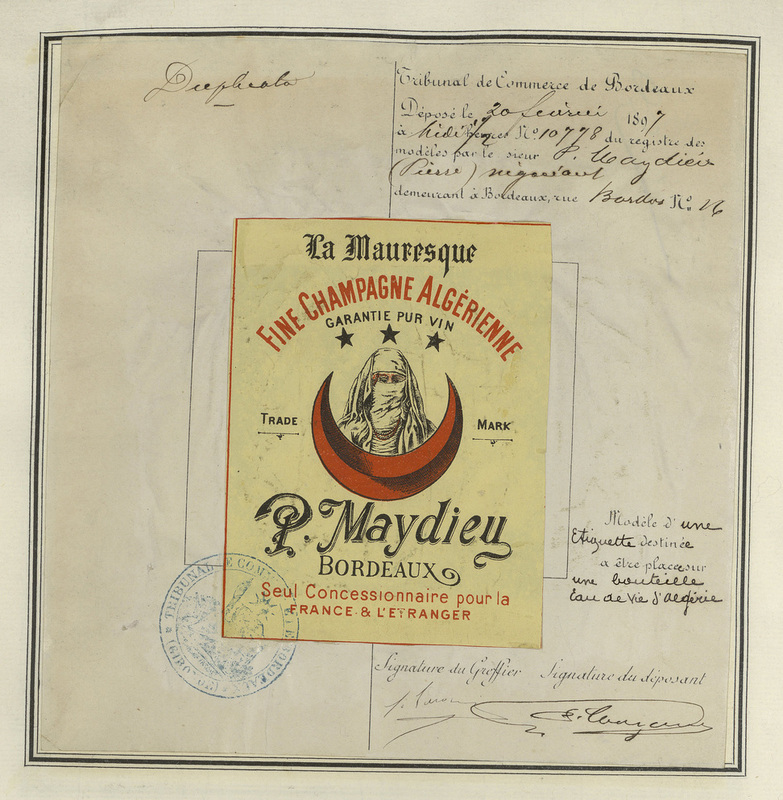 Duplicata
Tribunal de Commerce de Bordeaux
Déposé le 20 février 1897
à Midi 1/2 heures N° 10778 du registre des
modèles par le sieur P. Maydieu
(Pierre) négociant
demeurant à Bordeaux, rue Bordos N° 26
La Mauresque
FINE CHAMPAGNE ALGÉRIENNE
GARANTIE PUR VIN
TRADE MARK
P. Maydieu
BORDEAUX
Seul Concessionnaire pour la
FRANCE & L'ETRANGER
Modèle d'une
Etiquette destinée
a être placée sur
une bouteille
Eau de Vie d'Algérie
TRIBUNAL DE COMMERCE DE BORDEAUX
(GIRONDE)
Signature du Greffier Signature du déposant